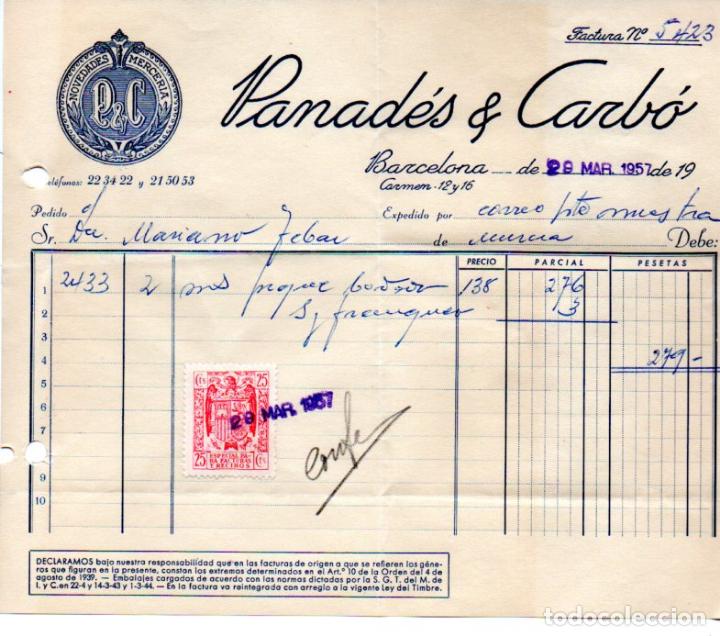 Factura Nº 5423
NOVEDADES MERCERIA
P&C
Panadés & Carbó
Teléfonos: 22 34 22 y 21 50 53
Barcelona de 29 MAR. 1957 de 19
Carmen - 12 y 16
Pedido Expedido por correo pte muestra
Sr. Mariano de Murcia Debe:
PRECIO PARCIAL PESETAS
1 2433 2 138 276
2 franqueo 3
3
4 279 -
5
6
9
10
25 Cts 25
29 MAR. 1957
ESPECIAL PA-
RA FACTURAS
Y RECIBOS
25 Cts
DECLARAMOS bajo nuestra responsabilidad que en las facturas de origen a que se refieren los géne-
ros que figuran en la presente, constan los extremos determinados en el Art.º 10 de la Orden del 4 de
agosto de 1939. — Embalajes cargados de acuerdo con las normas dictadas por la S. G. T. del M. de
I. y C. en 22-4 y 14-3-43 y 1-3-44. — En la factura va reintegrada con arreglo a la vigente Ley del Timbre.
todocoleccion.net